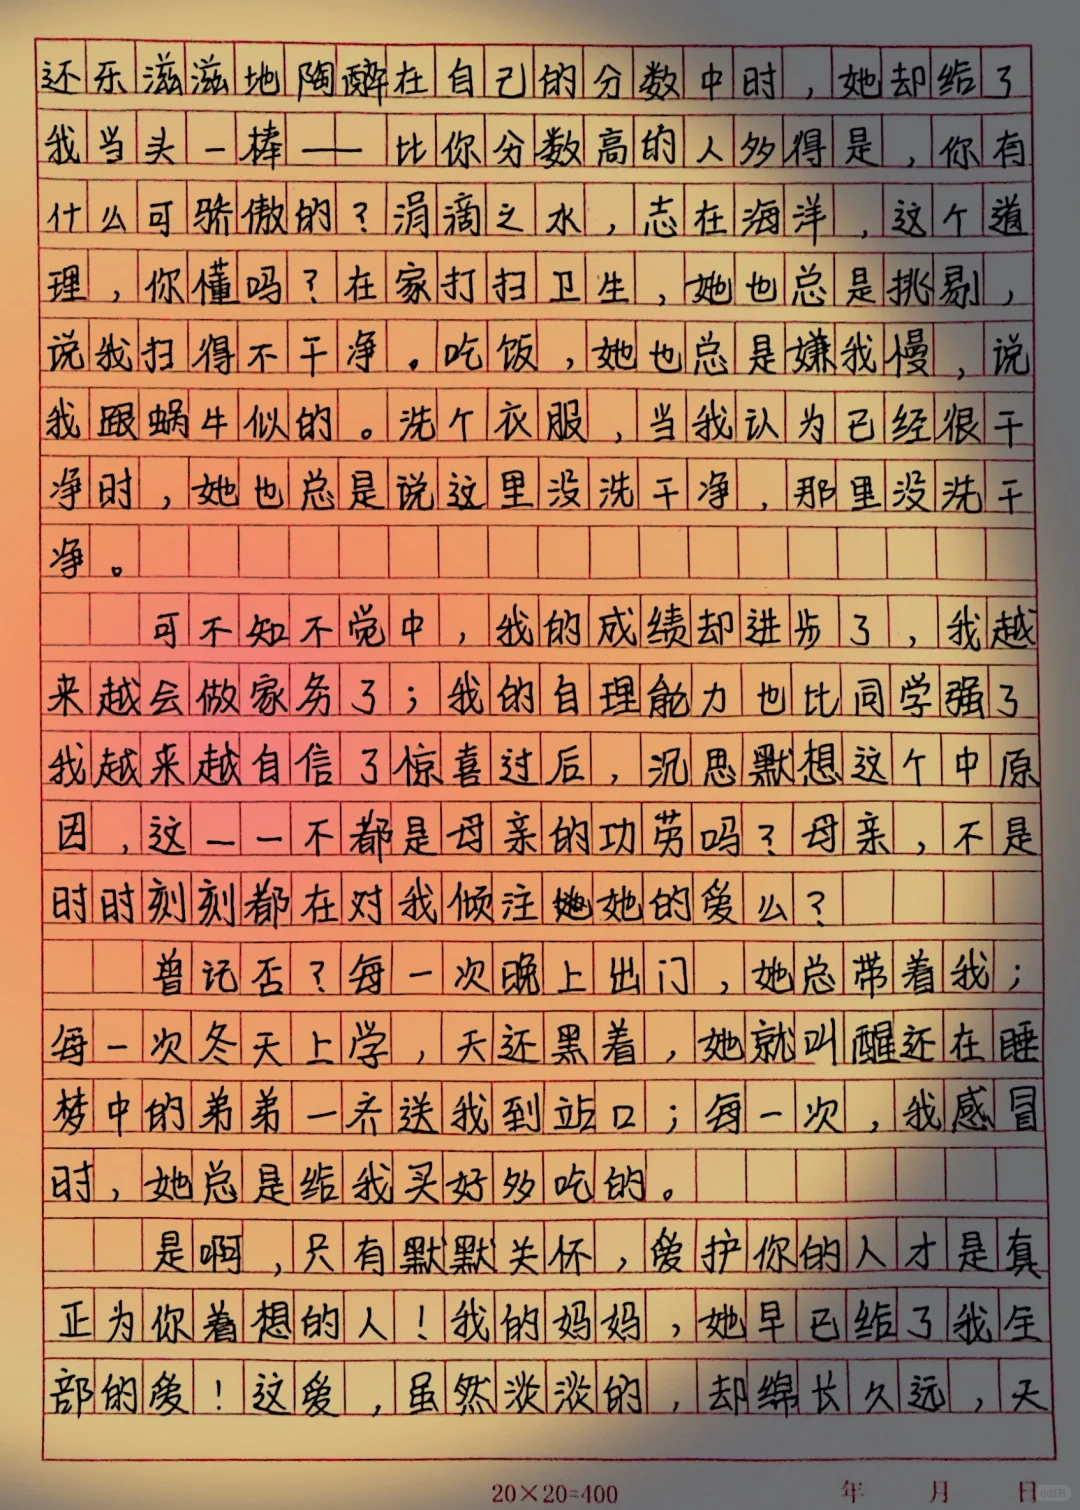 还乐滋滋地陶醉在自己的分数中时，她却给了
我当头一棒——比你分数高的人多得是，你有
什么可骄傲的？涓滴之水，志在海洋，这个道
理，你懂吗？在家打扫卫生，她也总是挑剔，
说我扫得不干净。吃饭，她也总是嫌我慢，说
我跟蜗牛似的。洗个衣服，当我认为已经很干
净时，她也总是说这里没洗干净，那里没洗干
净。
可不知不觉中，我的成绩却进步了，我越
来越会做家务了；我的自理能力也比同学强了
我越来越自信了惊喜过后，沉思默想这个中原
因，这一一不都是母亲的功劳吗？母亲，不是
时时刻刻都在对我倾注她的爱么？
曾记否？每一次晚上出门，她总带着我；
每一次冬天上学，天还黑着，她就叫醒还在睡
梦中的弟弟一齐送我到站口；每一次，我感冒
时，她总是给我买好多吃的。
是啊，只有默默关怀，爱护你的人才是真
正为你着想的人！我的妈妈，她早已给了我全
部的爱！这爱，虽然淡淡的，却绵长久远，天
20×20=400 年 月 日